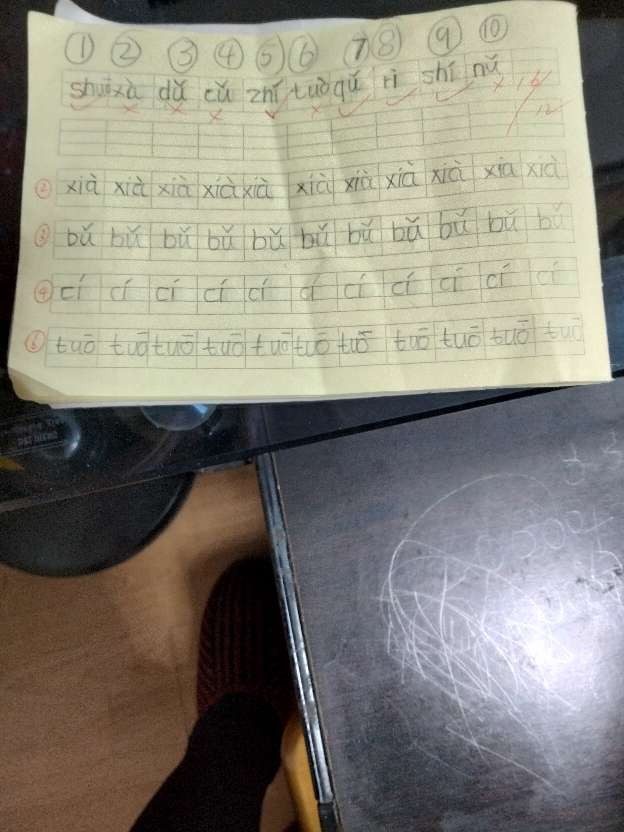 ① ② ③ ④ ⑤ ⑥ ⑦ ⑧ ⑨ ⑩
xà dǔ cǔ zhí tuò qǔ rì shí nǔ
② xià xià xià xià xià xià xià xià xià xià xià
③ bǔ bǔ bǔ bǔ bǔ bǔ bǔ bǔ bǔ bǔ bǔ
④ cí cí cí cí cí cí cí cí cí cí cí
⑥ tuō tuō tuō tuō tuō tuō tuō tuō tuō tuō tuō